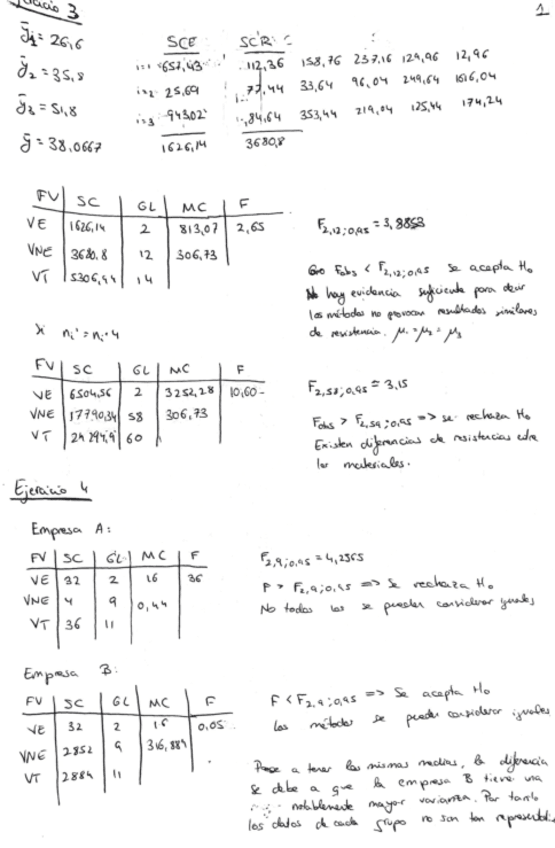 Ejercicio 3
1
ȳ₁ = 26,6
ȳ₂ = 35,8
ȳ₃ = 51,8
ȳ = 38,0667
SCE SCR
i=1 657,43 112,36 158,76 237,16 129,96 12,96
i=2 25,69 77,44 33,64 96,04 249,64 1616,04
i=3 943,02 84,64 353,44 219,04 125,44 174,24
1626,14 3680,8
FV SC GL MC F
VE 1626,14 2 813,07 2,65
VNE 3680,8 12 306,73
VT 5306,94 14
F2,12;0,95 = 3,8853
Fobs < F2,12;0,95 se acepta H₀
No hay evidencia suficiente para decir
los métodos no provocan resultados similares
de resistencia. μ₁ = μ₂ = μ₃
Si nᵢ' = nᵢ·4
FV SC GL MC F
VE 6504,56 2 3252,28 10,60
VNE 17790,34 58 306,73
VT 24294,9 60
F2,58;0,95 = 3,15
Fobs > F2,58;0,95 => se rechaza H₀
Existen diferencias de resistencias entre
los materiales.
Ejercicio 4
Empresa A:
FV SC GL MC F
VE 32 2 16 36
VNE 4 9 0,44
VT 36 11
F2,9;0,95 = 4,2565
F > F2,9;0,95 => Se rechaza H₀
No todos los se pueden considerar iguales
Empresa B:
FV SC GL MC F
VE 32 2 16 0,05
VNE 2852 9 316,889
VT 2884 11
F < F2,9;0,95 => Se acepta H₀
Los métodos se pueden considerar iguales
Pese a tener las mismas medias, la diferencia
se debe a que la empresa B tiene una
notablemente mayor varianza. Por tanto
los datos de cada grupo no son tan